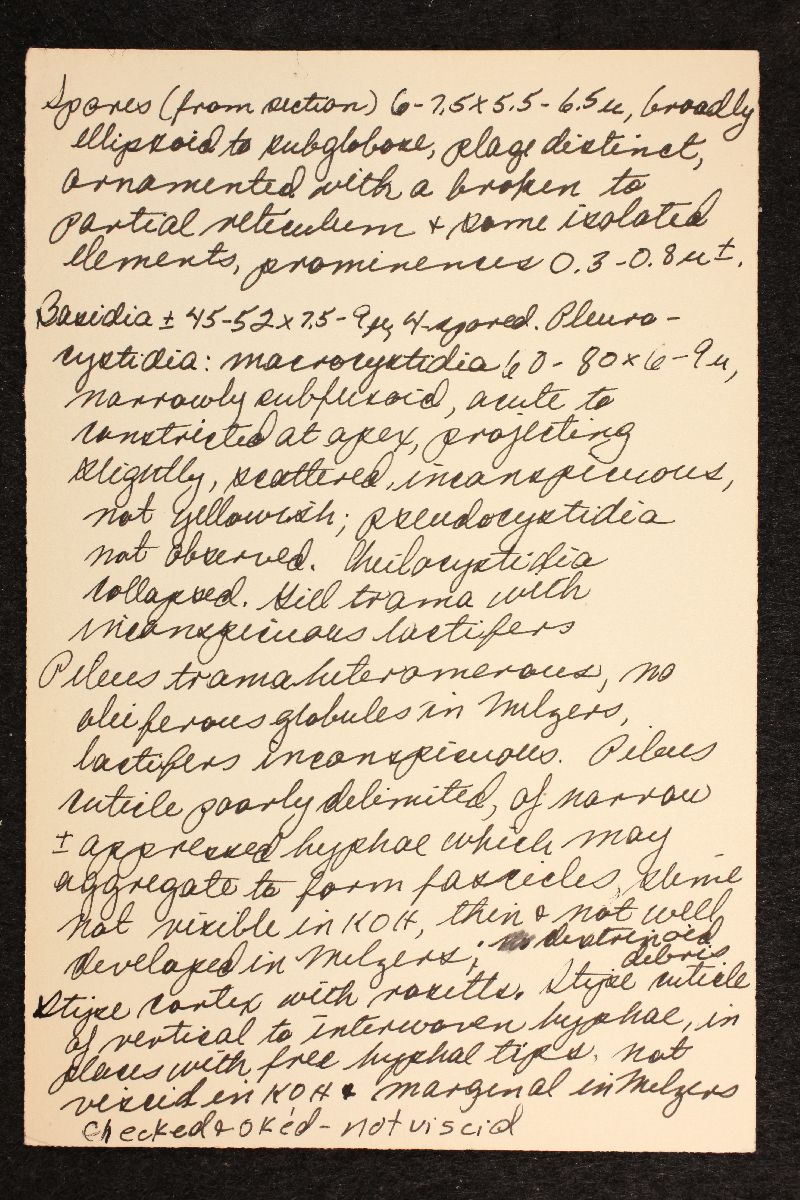 Spores (from section) 6-7.5x5.5-6.5u, broadly
ellipsoid to subglobose, plage distinct,
ornamented with a broken to
partial reticulum + some isolated
elements, prominences 0.3-0.8u±.
Basidia ± 45-52x7.5-9u, 4-spored. Pleuro-
cystidia: macrocystidia 60-80x6-9u,
narrowly subfusoid, acute to
constricted at apex, projecting
slightly, scattered, inconspicuous,
not yellowish; pseudocystidia
not observed. Cheilocystidia
collapsed. Gill trama with
inconspicuous lactifers
Pileus trama heteromerous, no
oleiferous globules in Melzers,
lactifers inconspicuous. Pileus
cuticle poorly delimited, of narrow
± appressed hyphae which may
aggregate to form fascicles, slime
not visible in KOH, thin & not well
developed in Melzers; dextrinoid
debris
Stipe cortex with rosetts. Stipe cuticle
of vertical to interwoven hyphae, in
places with free hyphal tips, not
viscid in KOH & marginal in Melzers
checked & ok'ed - not viscid